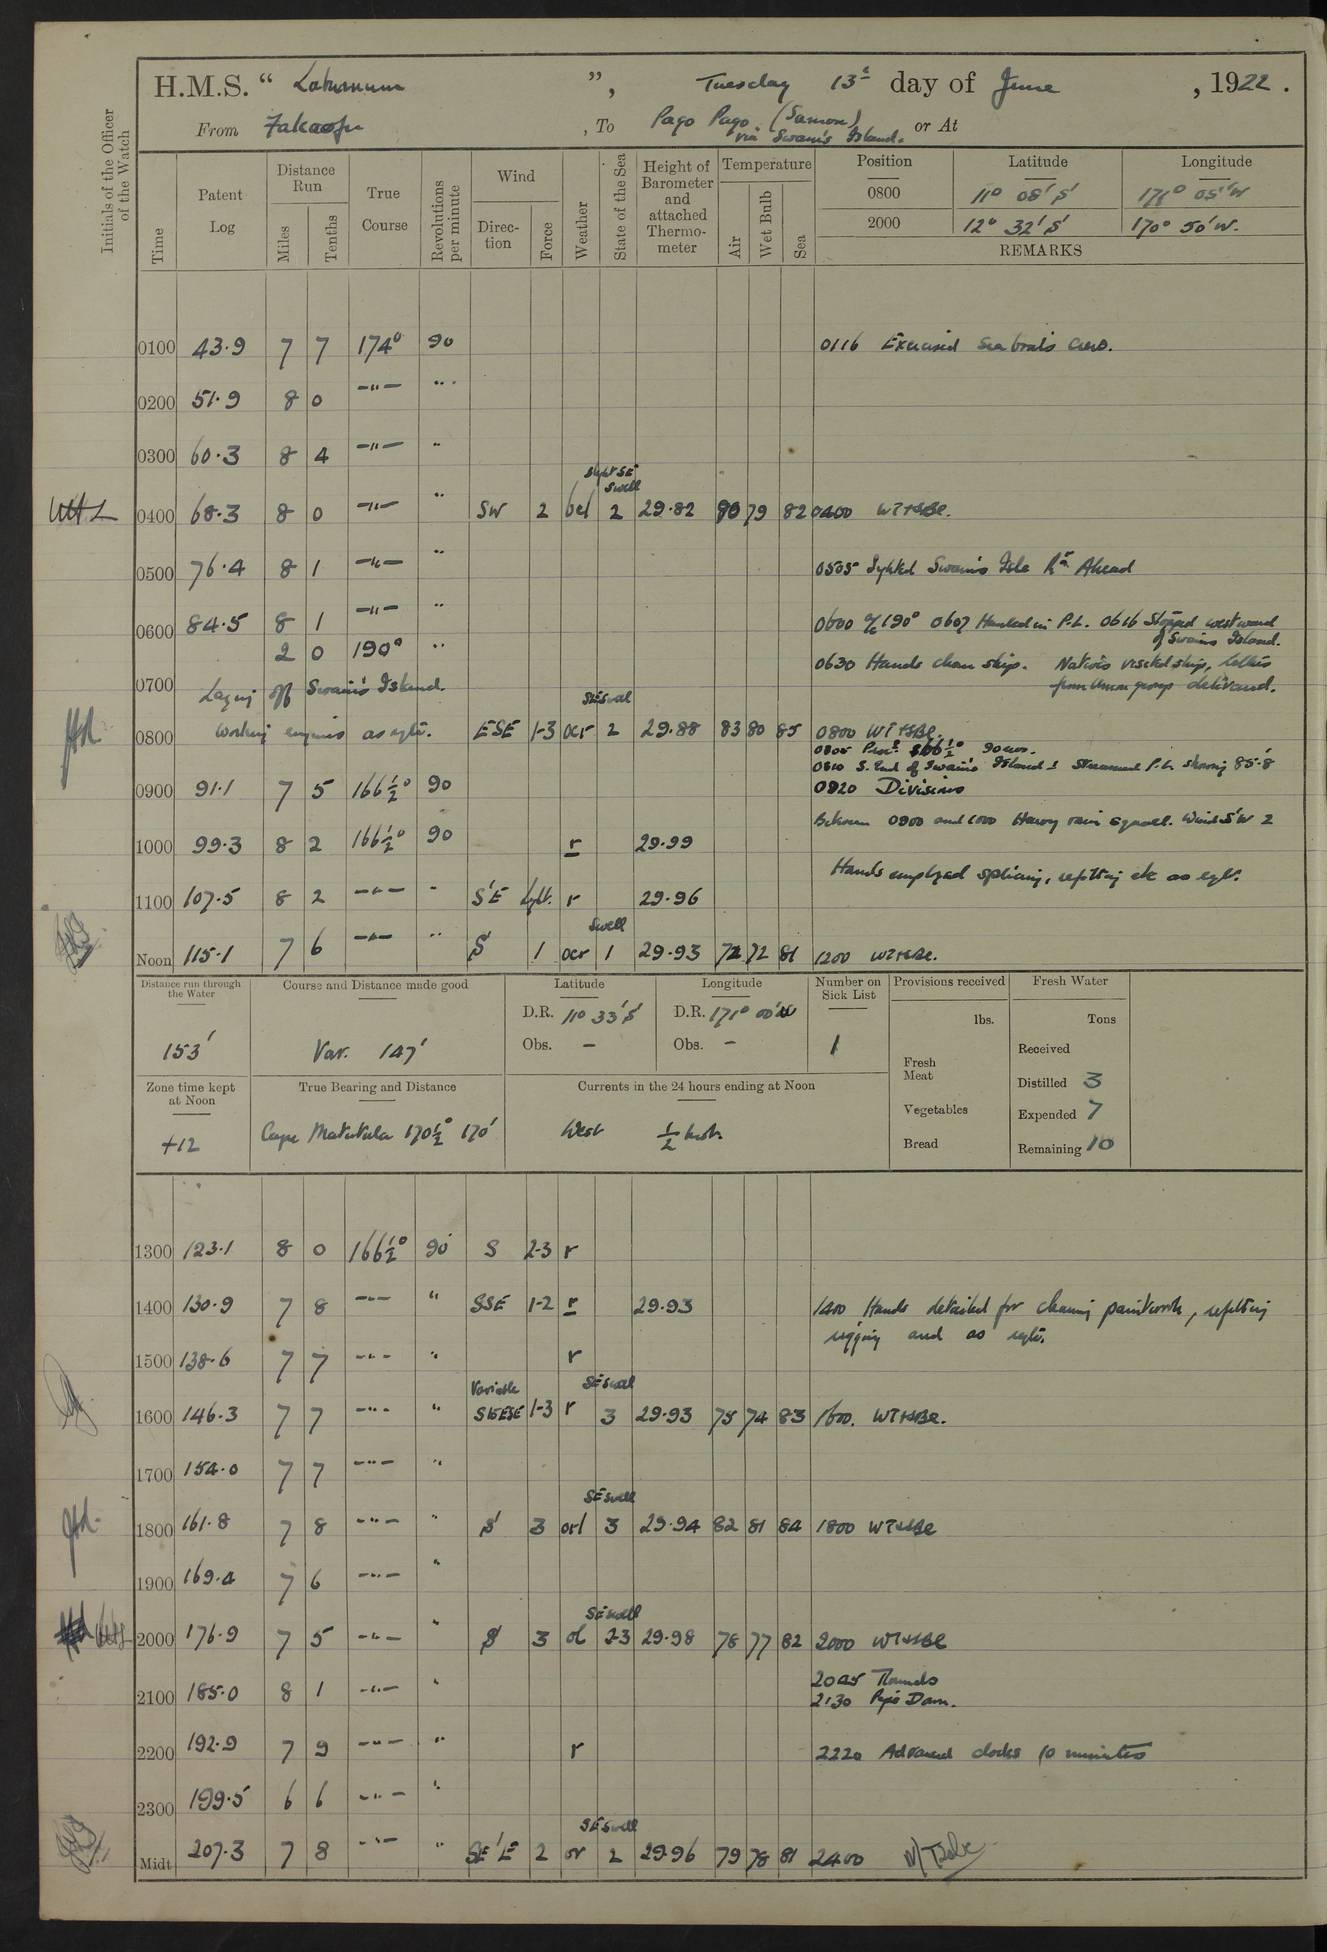 H.M.S. “ Laburnum ”, Tuesday 13th day of June, 1922.
From Fakaofu, To Pago Pago (Samoa) or At
via Swains Island.
Initials of the Officer of the Watch
Time Patent Log Distance Run Miles Tenths True Course Revolutions per minute Wind Direction Force Weather State of the Sea Height of Barometer and attached Thermometer Temperature Air Wet Bulb Sea
Position Latitude Longitude
0800 11° 08' S 171° 05' W
2000 12° 32' S 170° 50' W.
REMARKS
0100 43.9 7 7 174° 90 0116 Exercised sea boats crew.
0200 51.9 8 0 —"— "
0300 60.3 8 4 —"— "
slight SE swell
0400 68.3 8 0 —"— " SW 2 bcl 2 29.82 80 79 82 0400 WT+SBC.
0500 76.4 8 1 —"— " 0505 Sighted Swains Isle Rt Ahead
0600 84.5 8 1 —"— " 0600 a/c 190° 0607 Hauled in P.L. 0616 Stopped westward
of Swains Island.
2 0 190° " 0630 Hands clean ship. Natives visited ship, letters
from Union group delivered.
0700 Laying off Swain's Island.
SE swell
0800 Working engines as reqte. ESE 1-3 ocr 2 29.88 83 80 85 0800 WT+SBC.
0805 Procd. 166½° 90 revs.
0810 S. End of Swain's Island Streamed P.L. showing 85.8
0900 91.1 7 5 166½° 90 0920 Divisions
Between 0900 and 1000 Heavy rain squall. Wind SW 2
1000 99.3 8 2 166½° 90 r 29.99
Hands employed splicing, refitting etc as reqte.
1100 107.5 8 2 —"— " S'E Light. r 29.96
swell
Noon 115.1 7 6 —"— " S 1 ocr 1 29.93 72 72 81 1200 WT+SBC.
Distance run through the Water Course and Distance made good Latitude Longitude Number on Sick List Provisions received Fresh Water
D.R. 11° 33' S D.R. 171° 00' W lbs. Tons
153' Var. 147' Obs. — Obs. — 1
Fresh Meat Received
Zone time kept at Noon True Bearing and Distance Currents in the 24 hours ending at Noon Distilled 3
Vegetables Expended 7
+12 Cape Matatula 170½° 170' West ½ knot. Bread Remaining 10
1300 123.1 8 0 166½° 90 S 2-3 r
1400 130.9 7 8 —"— " SSE 1-2 r 29.93 1400 Hands detailed for cleaning paintwork, refitting
rigging and as reqte.
1500 138.6 7 7 —"— " r
Variable SE swell
1600 146.3 7 7 —"— " S to ESE 1-3 r 3 29.93 75 74 83 1600. WT+SBC.
1700 154.0 7 7 —"— "
SE swell
1800 161.8 7 8 —"— " S 3 orl 3 29.94 82 81 84 1800 WT+SBC
1900 169.4 7 6 —"— "
SE swell
2000 176.9 7 5 —"— " S 3 ol 2-3 29.98 78 77 82 2000 WT+SBC
2045 Rounds
2100 185.0 8 1 —"— " 2130 Pipe Down.
2200 192.9 7 9 —"— " r 2220 Advanced clocks 10 minutes
2300 199.5 6 6 —"— "
SE swell
Midt 207.3 7 8 —"— " SE'E 2 or 2 29.96 79 78 81 2400